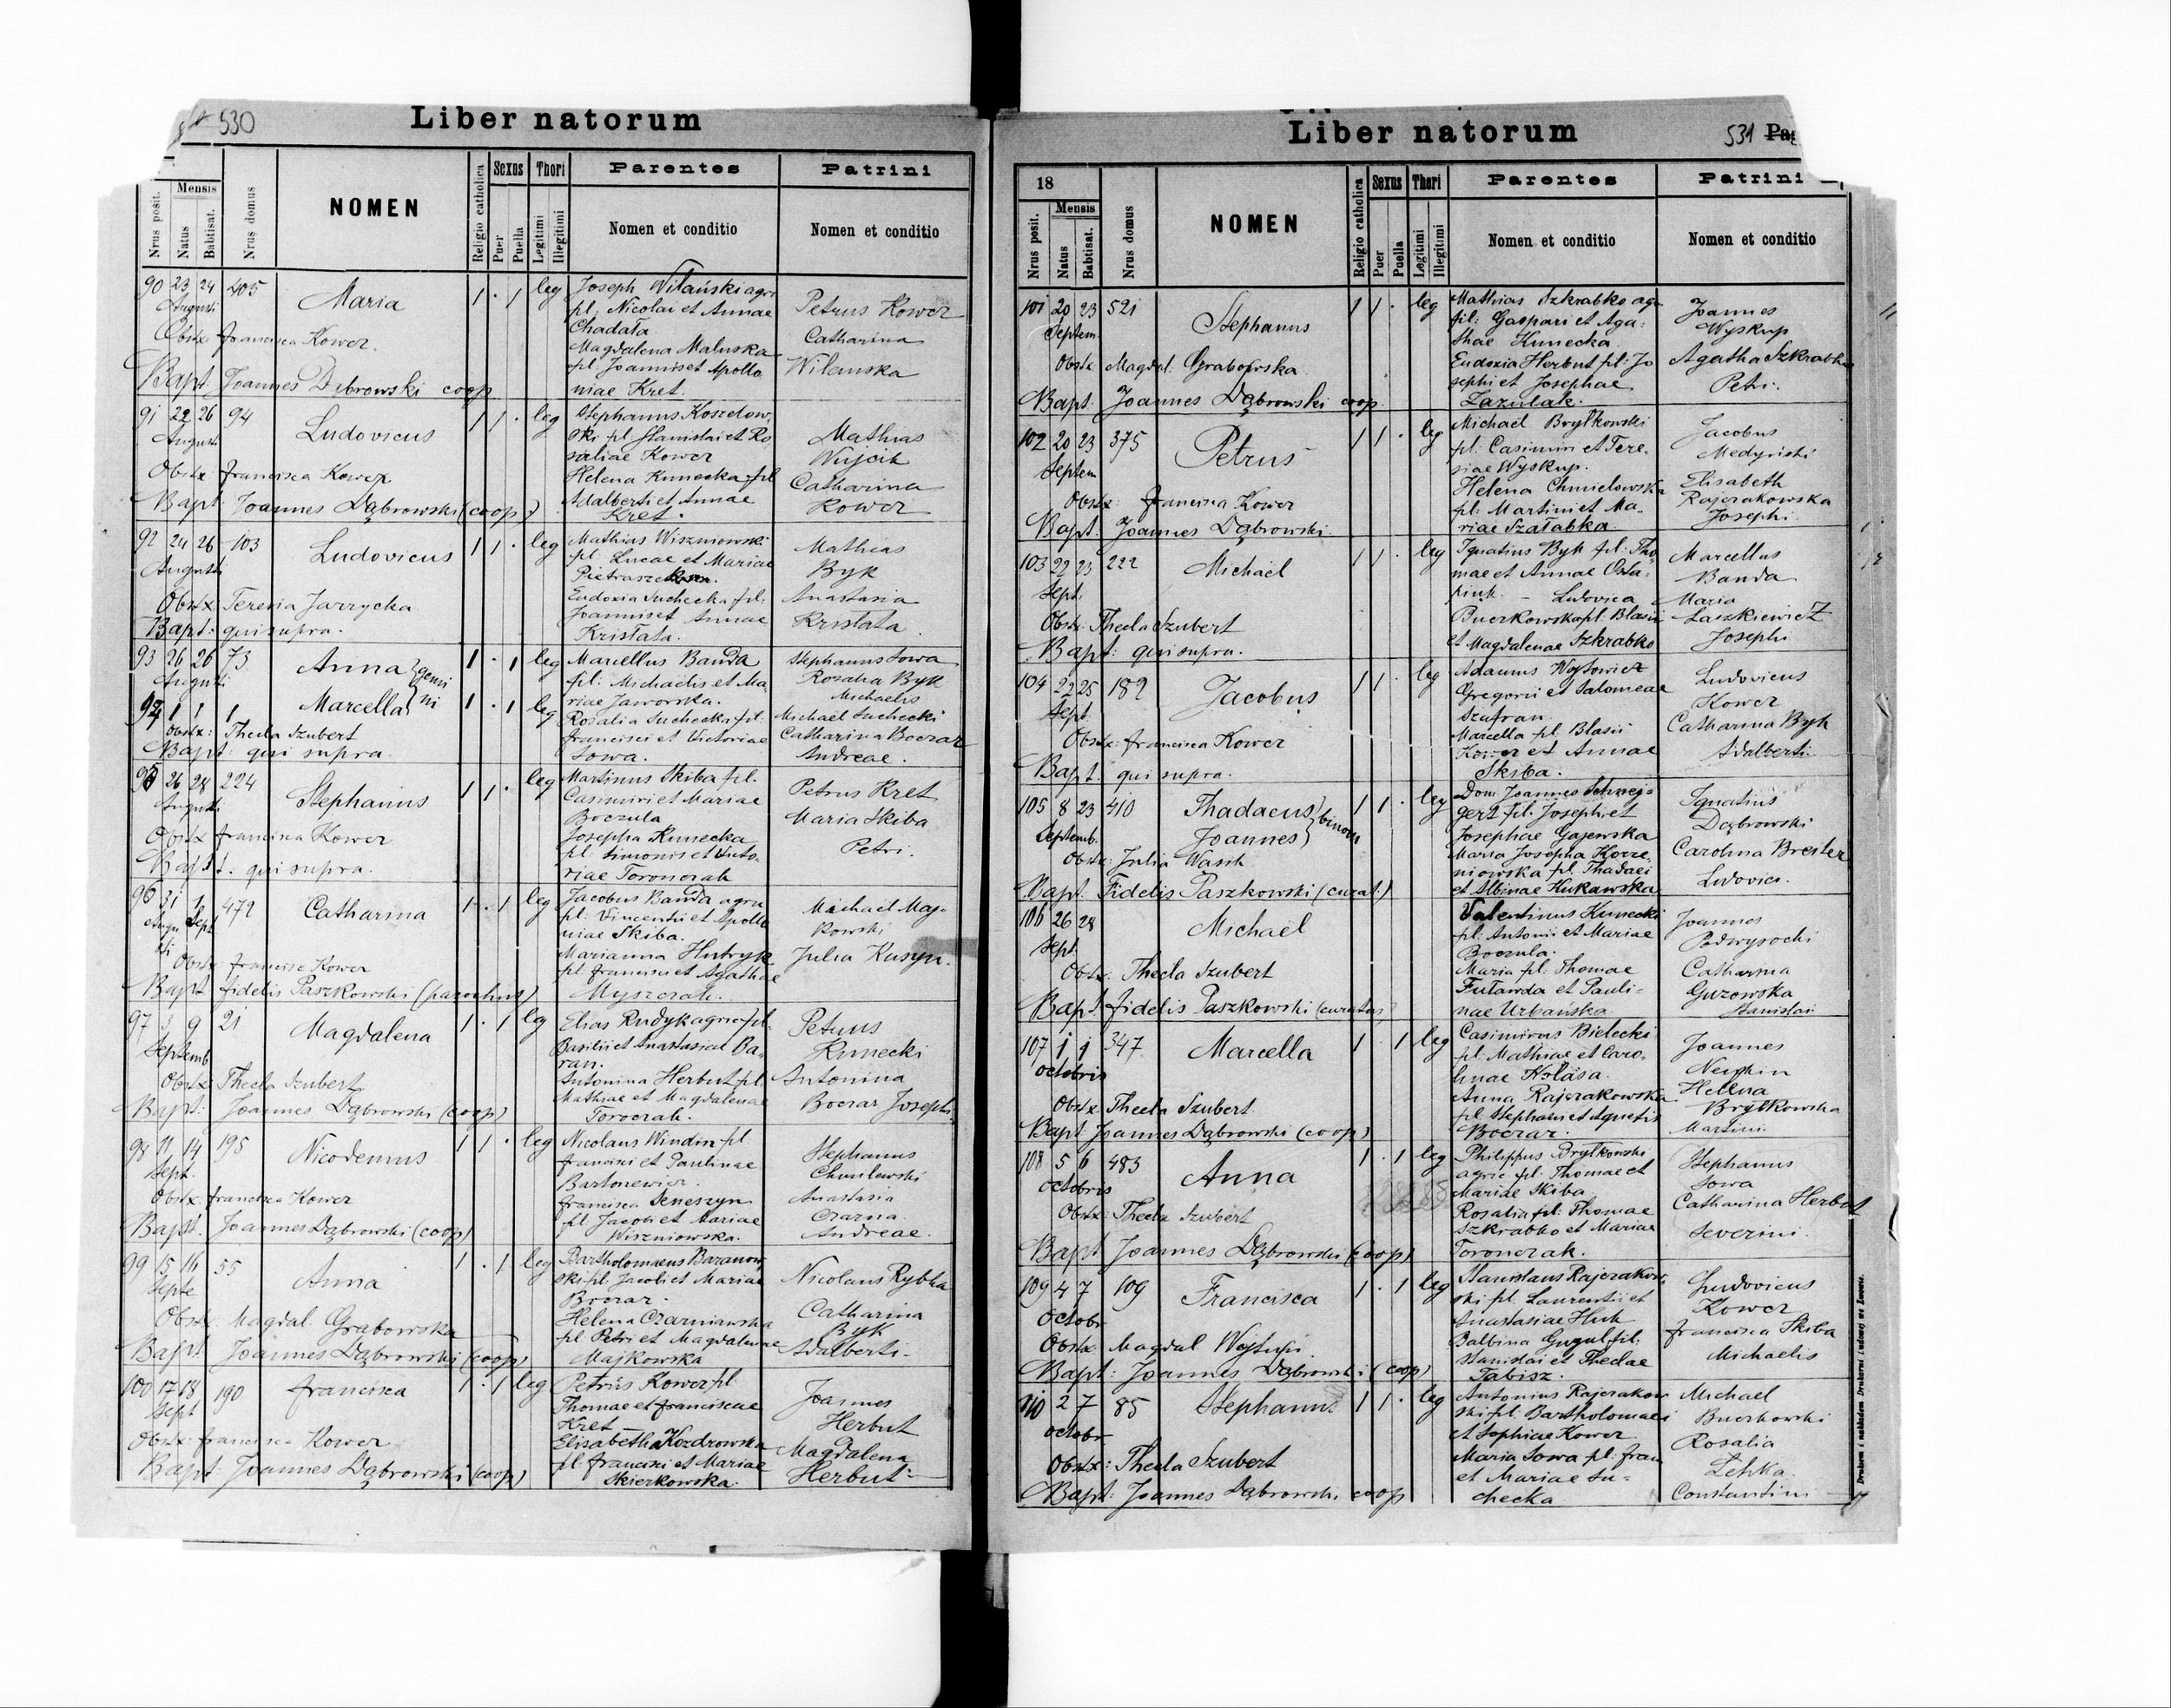 530
Liber natorum
Nrus posit. Mensis Natus Babtisat. Nrus domus NOMEN Religio catholica Sexus Puer Puella Thori Legitimi Illegitimi Parentes Nomen et conditio Patrini Nomen et conditio
90 23 24 405 Maria 1 . 1 leg Joseph Wilański agri
Augusti fil. Nicolai et Annae Petrus Kower
Chadała Catharina
Obstx francisca Kower. Magdalena Maluska Wilanska
fil Joannis et Apollo
Bapt Joannes Dąbrowski coop niae Kret.
91 22 26 94 Ludovicus 1 1 . leg Stephanus Koszelow
August ski fil Stanislai et Ro Mathias
saliae Kower Wujcik
Obstx francisca Kower Helena Kunecka fil Catharina
Adalberti et Annae Kower
Bapt Joannes Dąbrowski (coop) Kret.
92 24 26 103 Ludovicus 1 1 . leg Mathias Wiszniowski Mathias
Augusti fil. Lucae et Mariae Byk
Obstx: Teresia Jarzycka Eudoxia Suchecka fil. Anastasia
Joannis et Annae Kristata
Bapt: qui supra. Kristata.
93 26 26 73 Anna gemi 1 . 1 leg Marcellus Banda Stephanus Sowa
Augusti fil. Michaelis et Ma Rosalia Byk
riae Jaworska. Michaelis
94 1 1 1 Marcella ni 1 . 1 leg Rosalia Suchecka fil. Michael Suchecki
Obstx: Thecla Szubert francisci et Victoriae Catharina Boczar
Bapt: qui supra. Sowa. Andreae.
95 26 28 224 Stephanus 1 1 . leg Martinus Skiba fil.
Augusti Casimiri et Mariae Petrus Kret
Boczula Maria Skiba
Obstx francisca Kower Josepha Kunecka Petri.
fil. Simonis et Victo
Bapt. qui supra. riae Toronczak
96 31 1 472 Catharina 1 . 1 leg Jacobus Banda agri
Augu Sept fil. Vincentii et Apollo Michael Maj
sti niae Skiba. kowski
Obstx francisc Kower Marianna Hutryk Julia Kuszpi.
fil francisci et Agathae
Bapt fidelis Paszkowski (parochus) Myszczak.
97 9 21 Magdalena 1 . 1 leg Elias Rudyk agric fil. Petrus
Septemb Basilii et Anastasiae Ba Kunecki
ran.
Obstx Thecla Szubert Antonina Herbut fil Antonina
Mathiae et Magdalenae Boczar Josephi
Bapt: Joannes Dąbrowski (coop) Toroczak.
98 11 14 195 Nicodemus 1 1 . leg Nicolaus Windin fil
Sept. francisci et Paulinae Stephanus
Bartonewicz. Chmilewski
Obstx: francisca Kower francisca Deneszyn Anastasia
fil Jacobi et Mariae Czarna
Bapt. Joannes Dąbrowski (coop) Wiszniowska. Andreae.
99 15 16 55 Anna 1 . 1 leg Bartholomaeus Baranow
Septe ski fil. Jacobi et Mariae Nicolaus Rybka
Boczar.
Obstx: Magdal. Grabowska Helena Czarniawska Catharina
fil Petri et Magdalenae Byk
Bapt Joannes Dąbrowski (coop) Majkowska Adalberti
100 17 18 190 francisca 1 . 1 leg Petrus Kower fil
Sept Thomae et franciscae Joannes
Kret Herbut
Obstx: francisca Kower Elisabetha Kozdrowska Magdalena
fil francisci et Mariae
Bapt: Joannes Dąbrowski (coop) Skierkowska. Herbut
Liber natorum
531 Pag
18 Nrus posit. Mensis Natus Babtisat. Nrus domus NOMEN Religio catholica Sexus Puer Puella Thori Legitimi Illegitimi Parentes Nomen et conditio Patrini Nomen et conditio
101 20 23 521 Stephanus 1 1 . leg Mathias Szkrabko agr. Joannes
Septem fil: Gaspari et Aga: Wyskup
thae Kunecka.
Obstx Magdal. Grabowska Eudoxia Herbut fil. Jo Agatha Szkrabka
sephi et Josephae Petri.
Bapt. Joannes Dąbrowski coop. Zazulak.
102 20 23 375 Petrus 1 1 . leg Michael Brytkowski Jacobus
Septem fil. Casimiri et Tere Medyński
siae Wyskup.
Helena Chmielowska Elisabeth
Obstx francisca Kower fil. Martini et Ma Rajczakowska
Bapt. Joannes Dąbrowski. riae Szałabka. Josephi.
103 22 23 222 Michael 1 1 . leg Ignatius Byk fil. Tho Marcellus
Sept. mae et Annae Osta Banda
Ludovica Maria
Obstx Thecla Szubert Buczkowska fil. Blasii Laszkiewicz
Bapt: qui supra. et Magdalenae Szkrabko Josephi
104 22 25 182 Jacobus 1 1 . leg Adamus Wojtowicz Ludovicus
Sept. Gregorii et Salomeae Kower
Szafran
Obstx: francisca Kower Marcella fil Blasii Catharina Byk
Kower et Annae Adalberti
Bapt. qui supra. Skiba.
105 8 23 410 Thadaeus binom 1 1 . leg Dom Joannes Schwei Ignatius
gert fil. Joseph et Dąbrowski
Septemb. Joannes Josephae Gajewska
Obstx: Julia Wasik Maria Josepha Korze Carolina Breiter
niowska fil. Thadaei Ludovici.
Bapt. Fidelis Paszkowski (curat.) et Albinae Kukawska
106 26 28 Michael Valentinus Kunecki Joannes
Sept. fil. Antonii et Mariae Podwysocki
Boczula.
Obstx. Thecla Szubert Maria fil. Thomae Catharina
Futawda et Pauli Guzowska
Bapt. fidelis Paszkowski (curatus) nae Urbańska Stanislai
107 1 1 347 Marcella 1 . 1 leg Casimirus Bielecki Joannes
octobris fil. Mathiae et Caro
linae Kolasa.
Obstx Thecla Szubert Anna Rajczakowska Helena
fil Stephani et Agnetis Brytkowska
Bapt. Joannes Dąbrowski (coop) Boczar. Martini.
108 5 6 483 Anna 1 . 1 leg Philippus Brytkowski Stephanus
octobris agric fil. Thomae et Sowa
Mariae Skiba
Obstx: Thecla Szubert Rosalia fil. Thomae Catharina Herbut
Szkrabko et Mariae Severini.
Bapt Joannes Dąbrowski (coop) Toronczak.
109 4 7 109 Francisca 1 . 1 leg Stanislaus Rajczakow Ludovicus
octobr ski fil. Laurentii et Kower
Anastasiae Huk
Obstx. Magdal Balbina Gugul fil. francisca Skiba
Stanislai et Theclae Michaelis
Bapt: Joannes Dąbrowski (coop) Tabisz.
110 2 7 85 Stephanus 1 1 . leg Antonius Rajczakow Michael
octobr ski fil. Bartholomaei Buczkowski
et Sophiae Kower Rosalia
Obstx: Thecla Szubert Maria Sowa fil. fran
et Mariae Su
Bapt: Joannes Dąbrowski coop checka Constantini
Drukiem i nakładem Drukarni Ludowej we Lwowie.